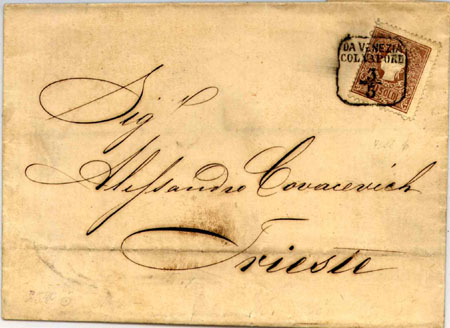 DA VENEZIA
COL VAPORE
3
6
Sigʳ
Alessandro Covacevich
Trieste